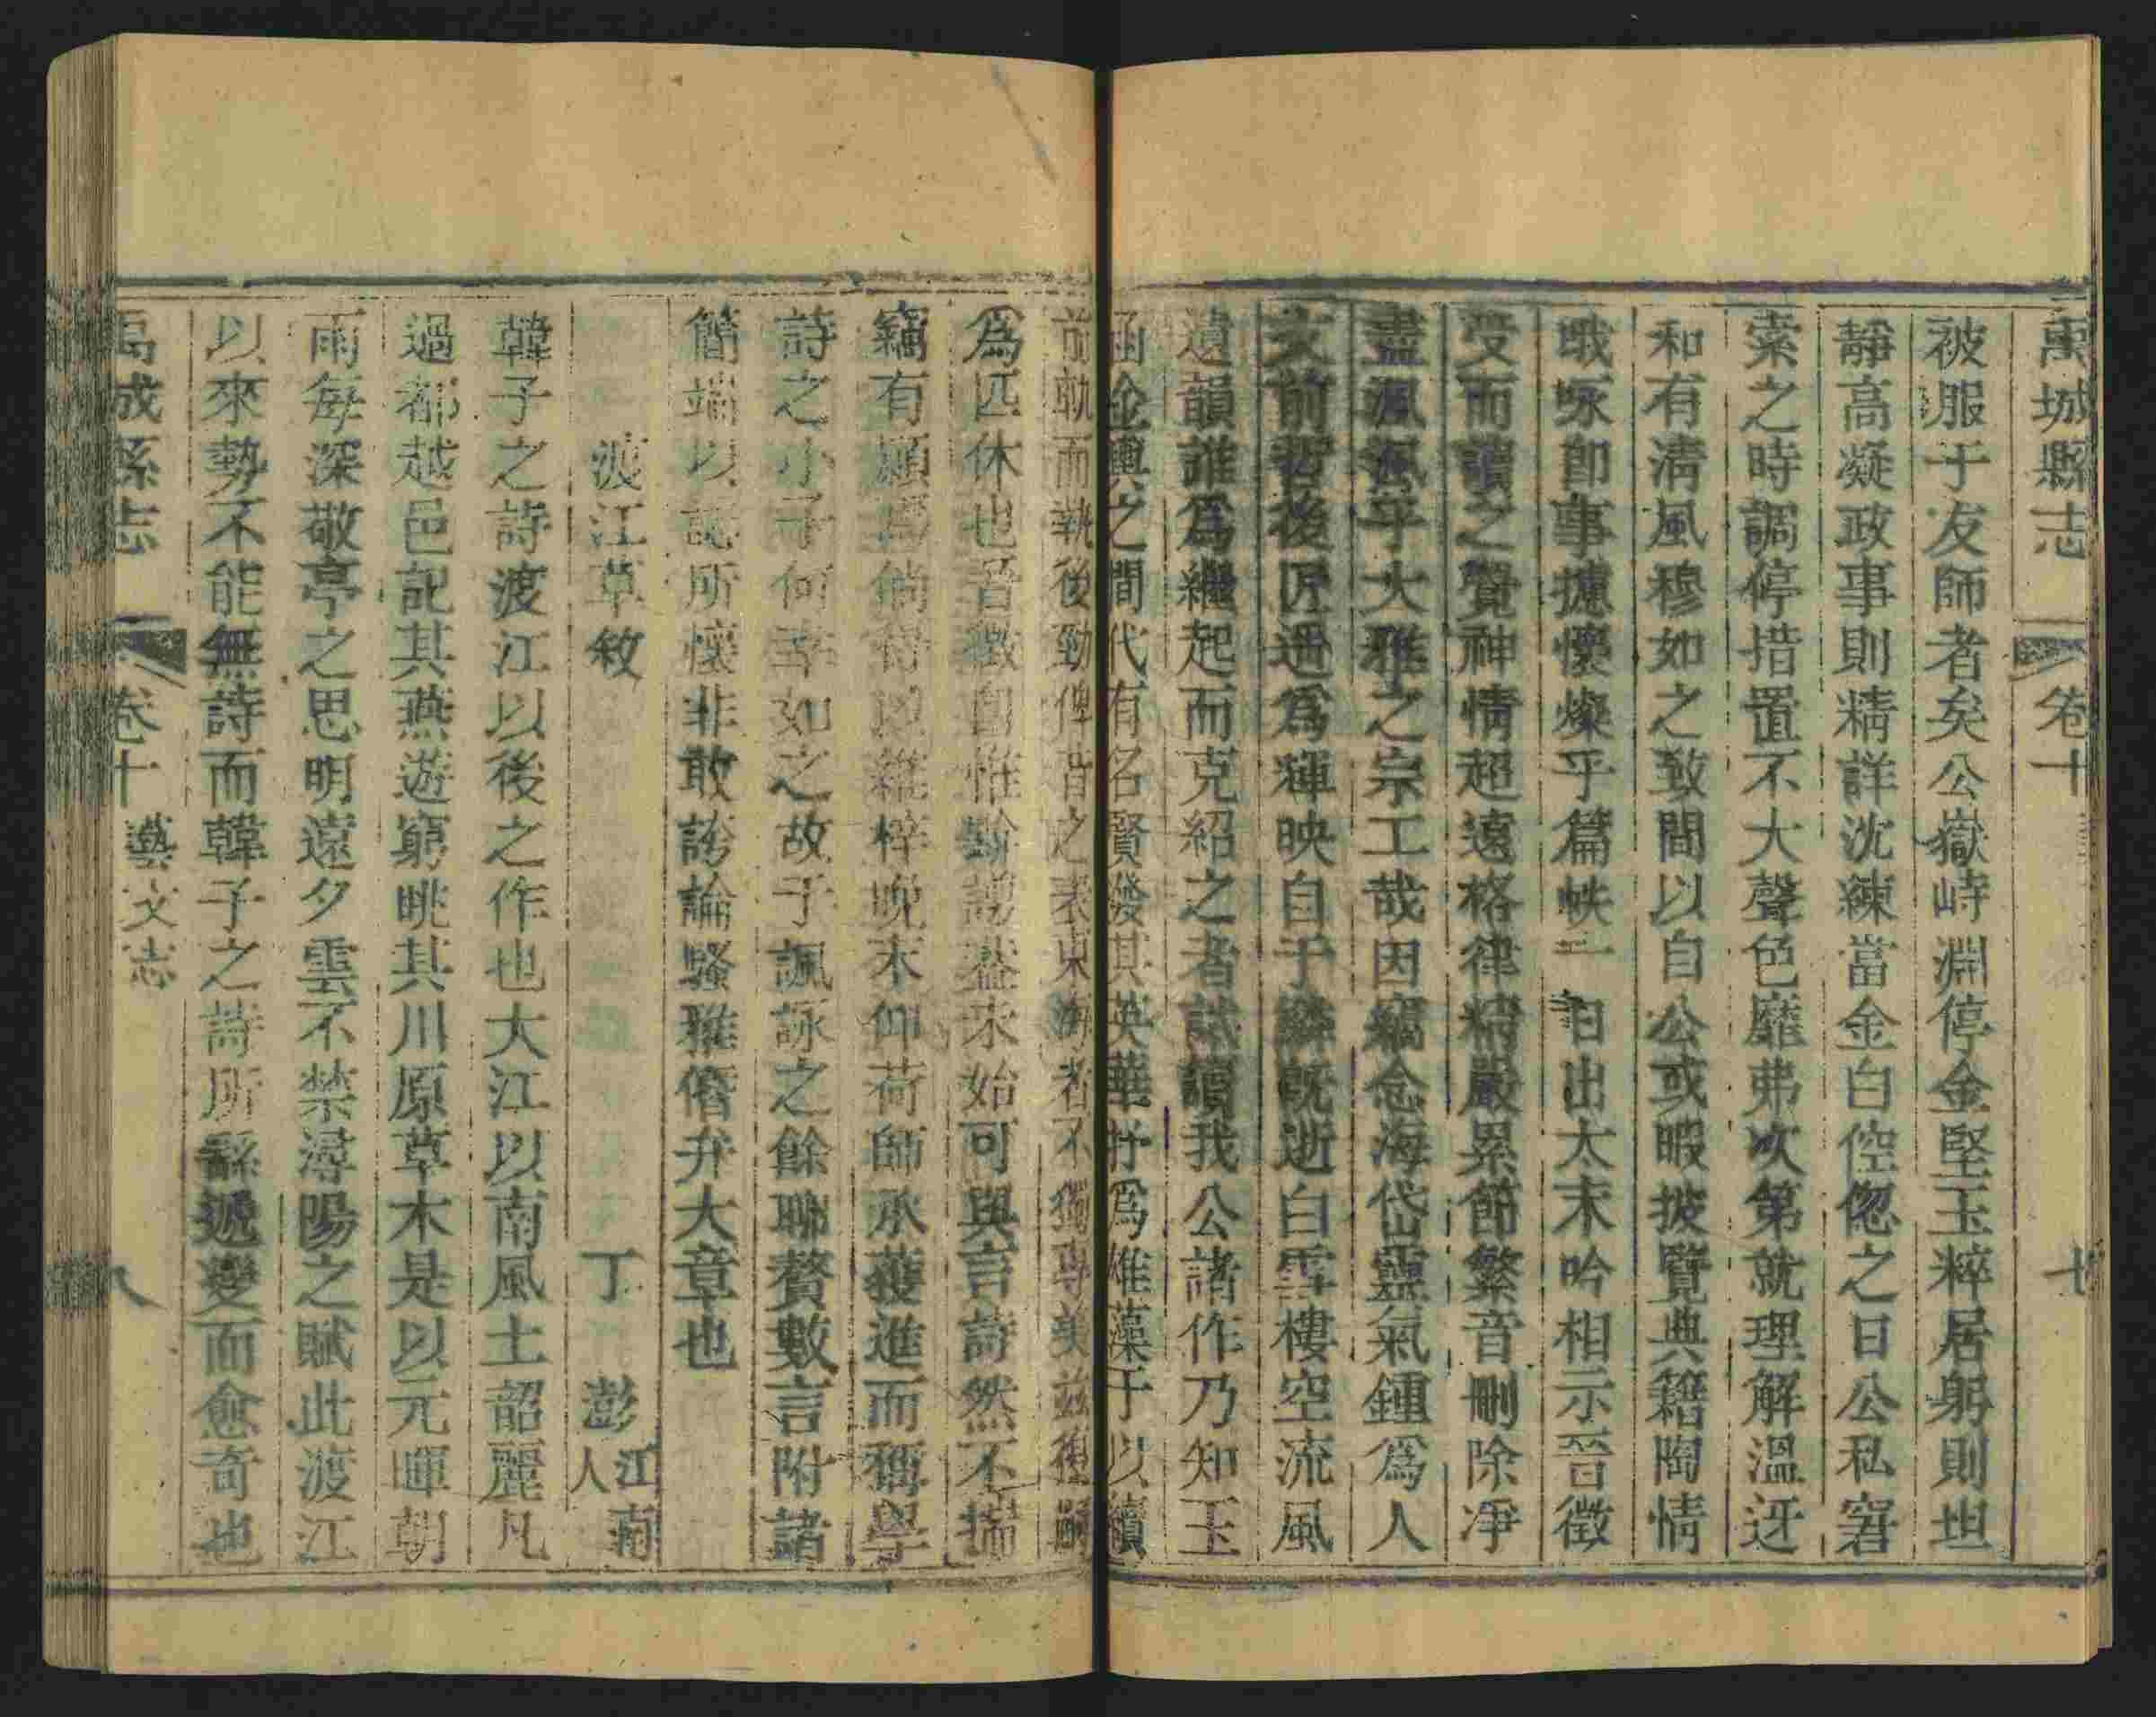 禹城縣志 卷十 七
被服于友師者矣公嶽峙淵停金堅玉粹居躬則坦
靜高凝政事則精詳沈練當金白倥偬之日公私窘
索之時調停措置不大聲色靡弗次第就理解溫迓
和有淸風穆如之致間以自公或暇披覽典籍陶情
哦咏卽事攄懷燦乎篇帙一日出太末吟相示晉徵
受而讀之覺神情超遠格律精嚴累節繁音刪除淨
盡渢渢乎大雅之宗工哉因竊念海岱靈氣鍾爲人
文前哲後匠遞爲輝映自于鱗旣逝白雪樓空流風
遺韻誰爲繼起而克紹之者試讀我公諸作乃知玉
函金輿之間代有名賢發其英華抒爲雄藻于以纘
前軌而執後勁俾皆之表東海者不獨專美兹復嗣
爲匹休也晉徵自惟譾謭蓋未始可與言詩然不揣
竊有願焉倘得以維梓晩末仰荷師承獲進而稱學
詩之小子何幸如之故于諷詠之餘聊贅數言附諸
簡端以誌所懷非敢誇論騷雅僭弁大章也
渡江草敘 丁 澎 江南人
韓子之詩渡江以後之作也大江以南風土韶麗凡
過都越邑記其燕遊窮眺其川原草木是以元暉朝
雨每深敬亭之思明遠夕雲不禁潯陽之賦此渡江
以來勢不能無詩而韓子之詩所繇遞變而愈奇也
禹城縣志 卷十 藝文志 八